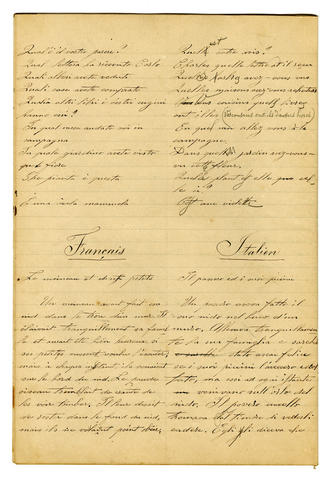 Qual'è il vostro paese?
Qual lettera ha ricevuto Carlo
Quali alberi avete veduti
Quali case avete comprate
Quali altri libri i vostri cugini
hanno essi?
In qual mese andate voi in
campagna
In quale giardino avete visto
fiore
Che pianta è questa
È una viola mammola
Quel est votre avis?
Charles quelle lettre at il reçu
avez-vous vus
Quelles maisons avez-vous achetées
cousins quels livres
ont-ils
En quel mois allez vous à la
campagne
Dans quel jardin avez-vous
vu cette fleur
Quelle plante est elle que
celle ci?
C'est une violette
Français
Le moineau et ses petits
Un moineau avait fait son
nid dans le trou d'un mur. Il
élevait tranquillement sa famille
et aurait été bien heureux si
ses petits eussent voulu l'écouter
mais à chaque instant ils venaient
sur le bord du nid. Le pauvre
oiseau tremblait de crainte de
les voir tomber. Il leur disait
de rester dans le fond du nid,
mais ils ne voulaient point
Italien
Il passero ed i suoi piccini
Un passero aveva fatto il
suo nido nel buco d'un
muro. Allevava tranquillamen
te la sua famiglia e sarebbe
stato assai felice
se i suoi piccini l'avessero
ma essi ad ogni istante
venivano sull'orlo del
nido. Il povero uccello
tremava dal timore di vederli
cadere. Egli gli diceva che